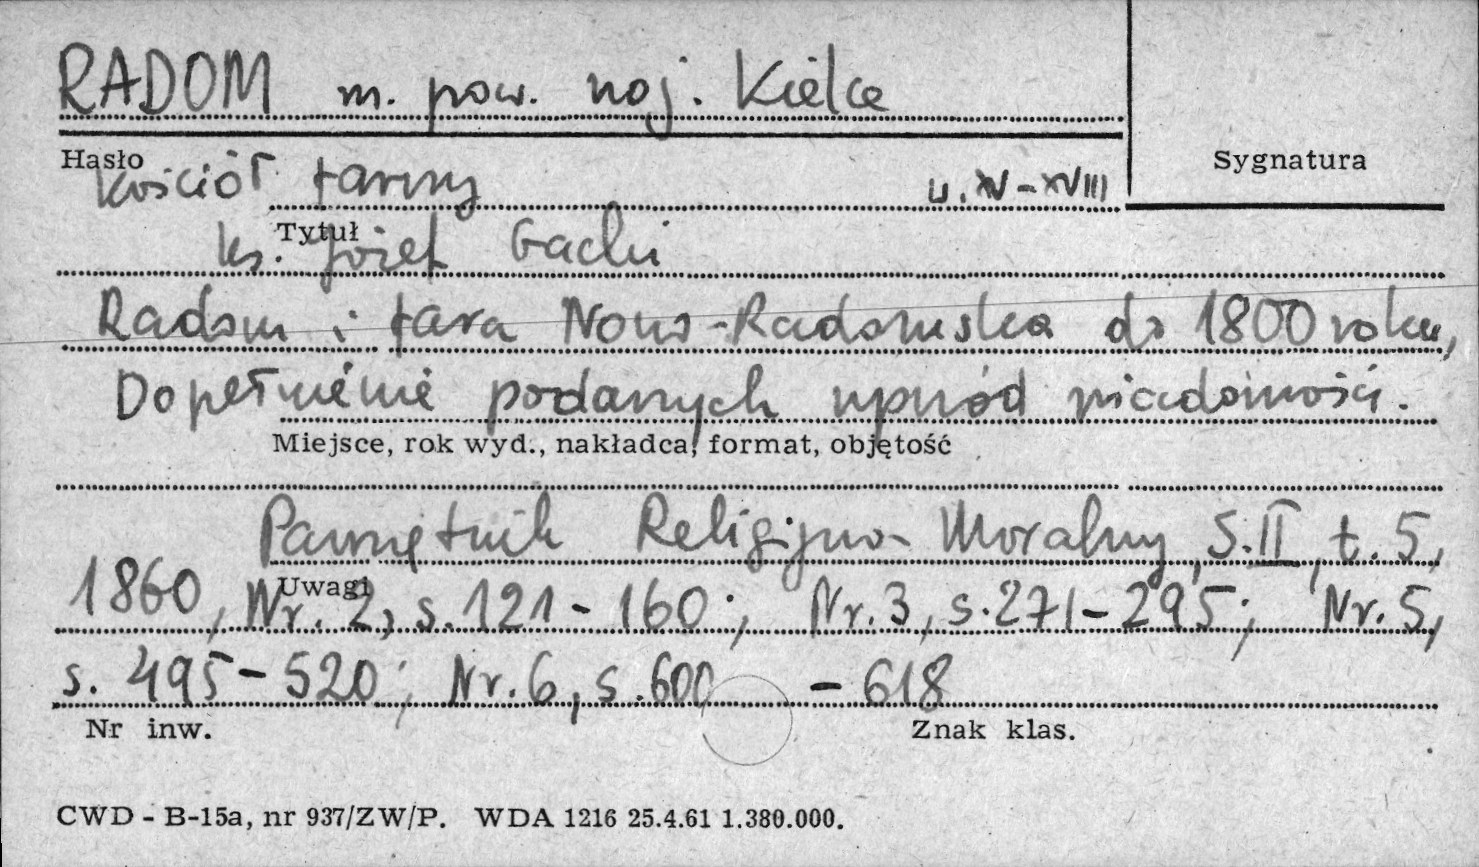 RADOM m. pow. woj. Kielce
Hasło
Sygnatura
Kościół farny w. XV-XVIII
Tytuł
ks. Józef Gacki
Radom i fara Nowo-Radomska do 1800 roku,
Dopełnienie podanych wprzód wiadomości.
Miejsce, rok wyd., nakładca, format, objętość
Pamiętnik Religijno-Moralny, S.II, t. 5,
Uwagi
1860, Nr. 2, s. 121-160; Nr. 3, s. 271-295; Nr. 5,
s. 495-520; Nr. 6, s. 600 - 618
Nr inw.
Znak klas.
CWD - B-15a, nr 937/ZW/P. WDA 1216 25.4.61 1.380.000.